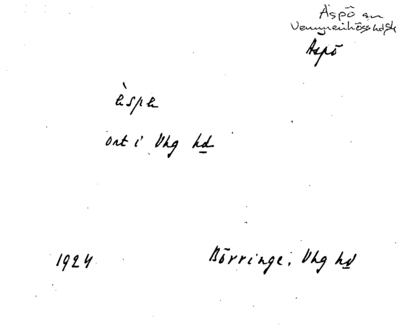 Äspö sn
Vemmenhögs hd Sk
Äspö
èspe
ort i Vhg hd
1924 Börringe, Vhg hd